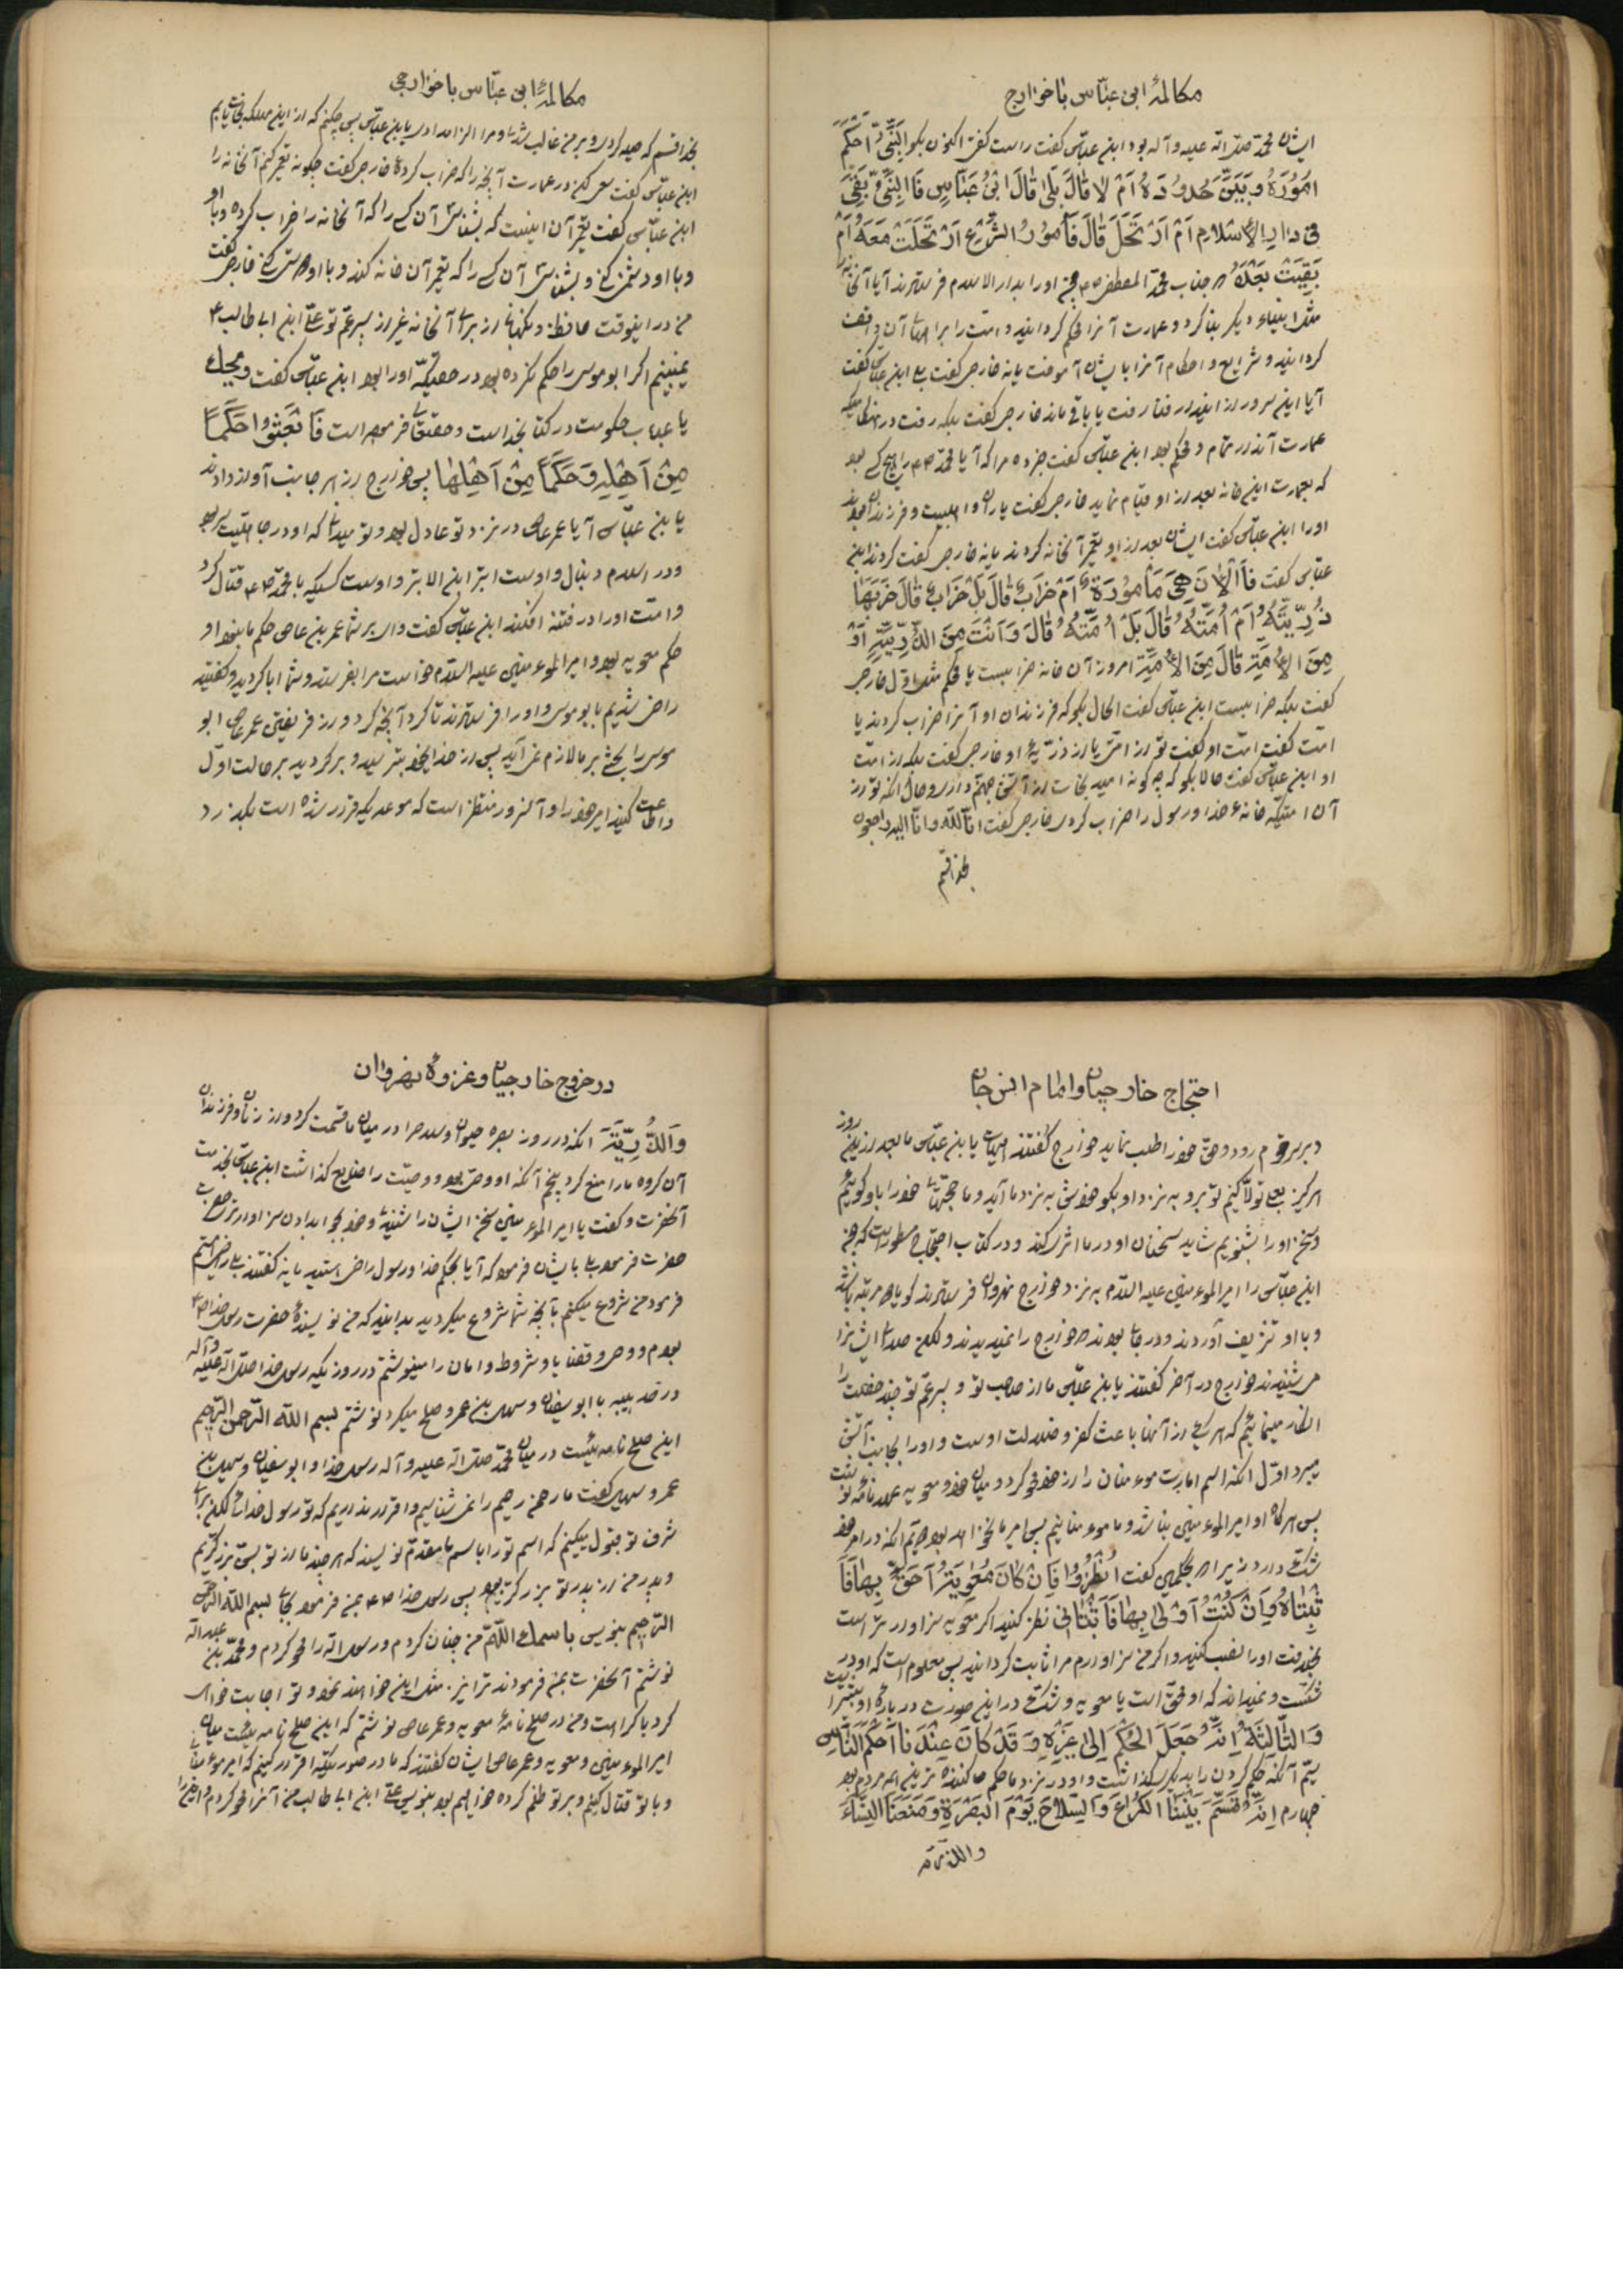 مکالمهٔ ابن عبّاس با خوارج
ایشان محمّد صلّی الله علیه و آله بود ابن عبّاس گفت راست گفتی اکنون بگو النَّبِیُّ اَحْکَمَ
اُمُورَهُ وَ بَیَّنَ حُدُودَهُ اَمْ لا قالَ بَلی قالَ ابْنُ عَبّاسٍ فَالنَّبِیُّ بَقِیَ
فی دارِ الْاِسْلامِ اَمْ اِرْتَحَلَ قالَ فَاُمُورُ الشَّرْعِ اِرْتَحَلَتْ مَعَهُ اَمْ
بَقِیَتْ بَعْدَهُ جناب محمّد المصطفی او را بدار الاسلام فرستادند آیا آنخانه را
مثل انبیاء دیگر بنا کرد و عمارت آنرا محکم گردانید و امّت را بر آن واقف
گردانید و شرایع و احکام آنرا بایشان آموخت یا نه خارجی گفت بلی ابن عبّاس گفت
آیا این سرور از ایندار فنا رفت یا باقی ماند خارجی گفت بلکه رفت در هنگامیکه
عمارت آن در تمام و محکم بود ابن عبّاس گفت خبر ده مرا که آیا محمّد را هیچ کسی بود
که بعمارت این خانه بعد از او قیام نماید خارجی گفت یاران و اهلبیت و فرزندان بودند
او را ابن عبّاس گفت ایشان بعد از او تعمیر آنخانه کردند یا نه خارجی گفت کردند ابن
عبّاس گفت فَالْآنَ هِیَ مَعْمُورَةٌ اَمْ خَرابٌ قالَ بَلْ خَرابٌ قالَ خَرَبَها
ذُرِّیَّتُهُ اَمْ اُمَّتُهُ قالَ بَلْ اُمَّتُهُ قالَ وَ اَنْتَ مِنَ الذُّرِّیَّةِ اَوْ
مِنَ الْاُمَّةِ قالَ مِنَ الْاُمَّةِ امروز آن خانه خرابست یا محکم مثل اوّل خارجی
گفت بلکه خرابست ابن عبّاس گفت الحال بگو که فرزندان او آنرا خراب کردند یا
امّت گفت امّت او گفت تو از امّتی یا از ذرّیهٔ او خارجی گفت بلکه از امّت
او ابن عبّاس گفت حالا بگو که چگونه امید نجات از آتش جهنّم داری و حال آنکه تو از
آن امّتیکه خانهٔ خدا و رسول را خراب کردی خارجی گفت انّا لله و انّا الیه راجعون
بخدا قسم
مکالمهٔ ابن عبّاس با خوارجی
بخدا قسم که حیله کردی و بر من غالب شدی و مرا الزام دادی یابن عبّاس پس چکنم که از این مهلکه نجات یابم
ابن عبّاس گفت سعی کن در عمارت آنچه را که خراب کردهٔ خارجی گفت چگونه تعمیر کنم آنخانه را
ابن عبّاس گفت تعمیر آن اینست که بشناسی آن کسی را که آنخانه را خراب کرده و با او
و با او دشمنی کنی و بشناسی آن کسی را که تعمیر آن خانه کند و با او دوستی کنی خارجی گفت
من در اینوقت حافظ و نگهبانی از برای آنخانه غیر از پسر عمّ تو علیّ ابن ابی طالب
نمیبینم اگر ابو موسی را حکم نکرده بود در حقیکه او را بود ابن عبّاس گفت ویحک
یا عتاب حکومت در کتاب خداست و حقتعالی فرموده است فَابْعَثُوا حَکَماً
مِنْ اَهْلِهِ وَ حَکَماً مِنْ اَهْلِها پس خوارج از هر جانب آواز دادند
یابن عبّاس آیا عمرعاص در نزد تو عادل بود و تو میدانی که او در جاهلیّت سر بود
و در اسلام دنبال و اوست ابتر ابن الابتر و اوست کسیکه با محمّد قتال کرد
و امّت او را در فتنه افکند ابن عبّاس گفت وای بر شما عمر بن عاص حکم ما نبود او
حکم معویه بود و امیر المؤمنین علیه السلام خواست مرا بفرستد و شما ابا کردید و گفتید
راضی شدیم بابو موسی و او را فرستادند تا کرد آنچه کرد و از فریفتن عمرعاص ابو
موسی را بحثی بر ما لازم نمی‌آید پس از خدایخود بترسید و برگردید بر حالت اوّل
و اطاعت کنید امیر خود را و آنروز منتظر است که موعدیکه قرار شده است بگذرد
احتجاج خارجیان و امام انس و جان
و بر سر قوم رود و حقّ خود را طلب نماید خوارج گفتند هیهات یابن عبّاس ما بعد از این روز
هرگز بعلی تولّا نکنیم تو برو به نزد او بگو خودش به نزد ما آید و ما حجّتهای خود را باو گوئیم
و سخن او را بشنویم شاید سخنان او در ما اثر کند و در کتاب احتجاج مسطور است که چون
ابن عبّاس را امیر المؤمنین علیه السّلام به نزد خوارج نهروان فرستادند
و با او تشریف آوردند و در جائی بودند که خوارج را نمیدیدند ولکن صدای ایشانرا
می‌شنیدند خوارج در آخر گفتند یابن عبّاس ما از صاحب تو و پسر عمّ تو چند خصلت را
انکار مینمائیم که هر یکی از آنها باعث کفر و ضلالت اوست و او را بجانب آتش
میبرد اوّل آنکه اسم امارت مؤمنان را از خود محو کرد و میان خود و معویه عهدنامه نوشت
پس هرگاه او امیر المؤمنین نباشد و ما مؤمنانیم پس امیر ما نخواهد بود دوّیم آنکه در امر خود
شکّ دارد زیرا که بحکمین گفت اُنْظُرُوا فَاِنْ کانَ مُعاوِیَةُ اَحَقَّ بِها فَا
ثْبِتاهُ وَ اِنْ کُنْتُ اَوْلی بِها فَاَثْبِتانی نظر کنید اگر معویه سزاوارتر است
بخلافت او را نصب کنید و اگر من سزاوارم مرا ثابت گردانید پس معلوم است که او در
شکّست و نمیداند که او محقّ است یا معویه و شکّ در این صورت در بارهٔ او بیشتر است
وَ الثّالِثَةُ اِنَّهُ جَعَلَ الْحُکْمَ اِلی غَیْرِهِ وَ قَدْ کانَ عِنْدَنا اَحْکَمَ النّاسِ
سیّم آنکه حکم کردن را بدیگری گذاشت و او در نزد ما حکم کننده‌ترین همه مردم بود
چهارم اِنَّهُ قَسَّمَ بَیْنَنَا الْکُراعَ وَ السِّلاحَ یَوْمَ الْبَصْرَةِ وَ مَنَعَنَا النِّساءَ
والذّریّة
در خروج خارجیان و غزوهٔ نهروان
وَ الذُّرِّیَّةَ آنکه در روز بصره حیوان و سلاح را در میان ما قسمت کرد و از زنان و فرزندان
آن گروه ما را منع کرد پنجم آنکه او وصیّ بود و وصیّت را ضایع گذاشت ابن عبّاس بخدمت
آنحضرت و گفت یا امیر المؤمنین سخن ایشان را شنیدی و خود بجواب دادن سزاوارتری
حضرت فرمود بلی بایشان فرمود که آیا بحکم خدا و رسول راضی هستید یا نه گفتند بلی راضی هستیم
فرمود من شروع میکنم بآنچه شما شروع میکردید بدانید که من نویسندهٔ حضرت رسول خدا
بودم و وحی و قضایا و شروط و امان را مینوشتم در روزیکه رسول خدا صلّی الله علیه و آله
در حدیبیه با ابو سفیان و سهیل بن عمرو صلح میکرد نوشتم بسم الله الرّحمن الرّحیم
این صلح نامه ئیست در میان محمّد صلّی الله علیه و آله رسول خدا و ابو سفیان و سهیل بن
عمرو سهیل گفت ما رحمن رحیم را نمی شناسیم و اقرار نداریم که تو رسول خدائی لکن برای
شرف تو قبول میکنیم که اسم تو را باسم ما مقدّم نویسند که هر چند ما از تو بسنّ بزرگتریم
و پدر من از پدر تو بزرگتر بود پس رسول خدا بمن فرمود بجای بسم الله الرّحمن
الرّحیم بنویس باسمک اللّهمّ من چنان کردم و رسول الله را محو کردم و محمّد بن عبد الله
نوشتم آنحضرت بمن فرمودند ترا نیز مثل این خواهند نمود و تو اجابت خواهی
کرد باکراه است و من در صلح نامهٔ معویه و عمرعاص نوشتم که این صلح نامه ایست میان
امیر المؤمنین و معویه و عمرعاص ایشان گفتند که ما در صورتیکه اقرار کنیم که امیر مؤمنانی
و با تو قتال کنیم و بر تو ظلم کرده خواهیم بود بنویس علیّ ابن ابی طالب من آنرا محو کردم